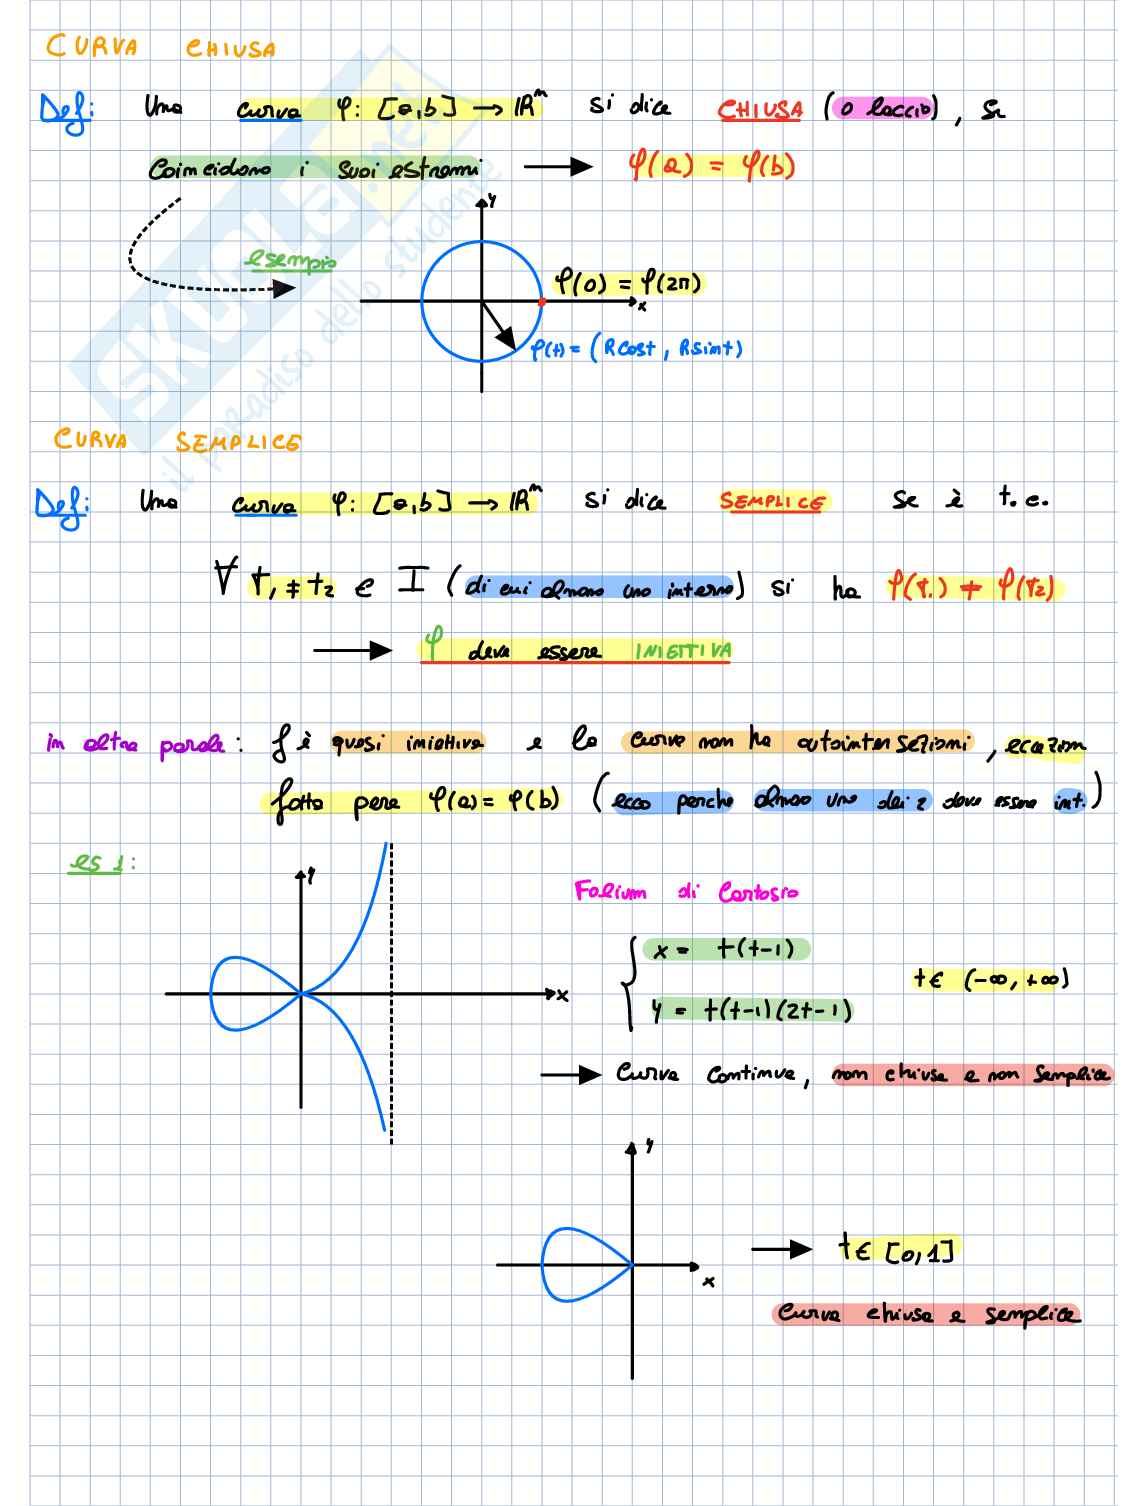 CURVA CHIUSA
Def: Una curva φ: [a,b] → IRⁿ si dice CHIUSA (o laccio), se
Coincidono i suoi estremi → φ(a) = φ(b)
y
esempio
φ(0) = φ(2π)
x
φ(t) = (Rcost, Rsint)
SKUOLA.net
il paradiso dello studente
CURVA SEMPLICE
Def: Una curva φ: [a,b] → IRⁿ si dice SEMPLICE se è t.c.
∀ t₁ ≠ t₂ ∈ I (di cui almeno uno interno) si ha φ(t₁) ≠ φ(t₂)
→ φ deve essere INIETTIVA
in altre parole: f è quasi iniettiva e la curva non ha autointersezioni, eccezion
fatta per φ(a) = φ(b) (ecco perche almeno uno dei 2 deve essere int.)
es 1:
y
Folium di Cartesio
x = t(t-1)
t ∈ (-∞, +∞)
x
y = t(t-1)(2t-1)
→ Curva continua, non chiusa e non semplice
y
→ t ∈ [0,1]
x
Curva chiusa e semplice